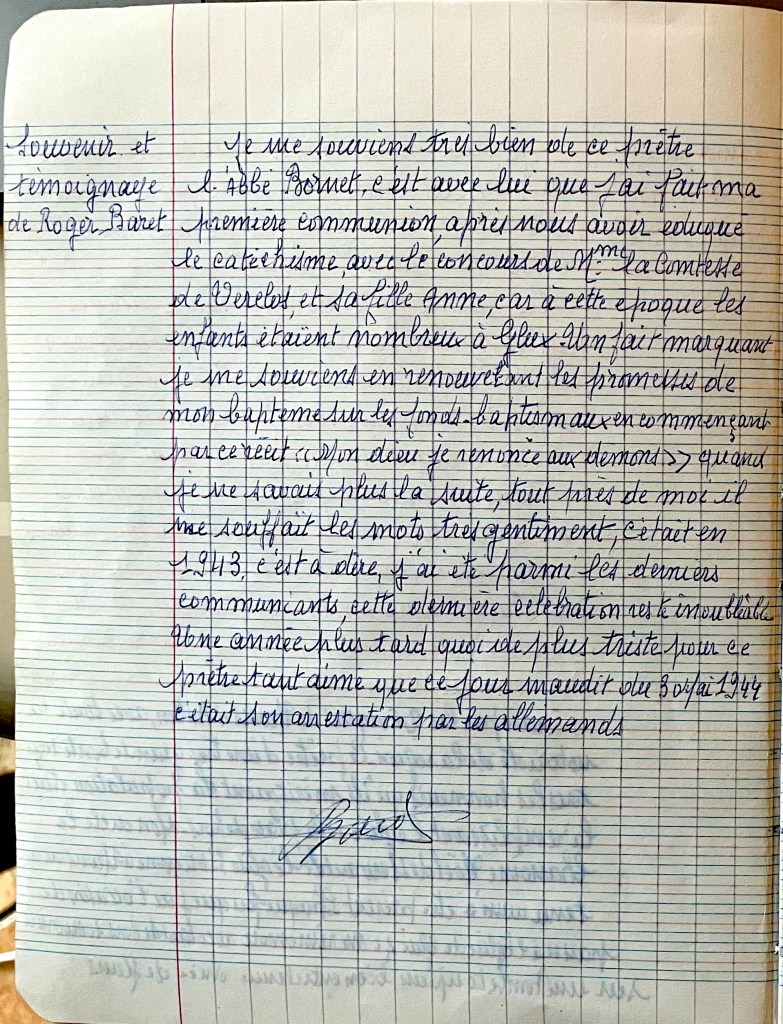 Souvenir et
témoignage
de Roger Baret
Je me souviens tres bien de ce prêtre
l'Abbé Bornet, c'est avec lui que j'ai fait ma
première communion, après nous avoir éduqué
le catéchisme, avec le concours de Mme la Comtesse
de et sa fille Anne, car à cette époque les
enfants étaient nombreux à Glux. Un fait marquant
je me souviens en renouvelant les promesses de
mon bapteme sur les fonds-baptismaux en commençant
par ce récit <<Mon dieu je renonce aux demons>> quand
je ne savais plus la suite, tout près de moi il
me souffait les mots tres gentiment, c'était en
1943, c'est à dire, j'ai été parmi les derniers
communiants, cette dernière célébration reste inoubliable
Une année plus tard quoi de plus triste pour ce
prêtre tant aimé que ce jour maudit du 3 Mai 1944
c'était son arrestation par les allemands